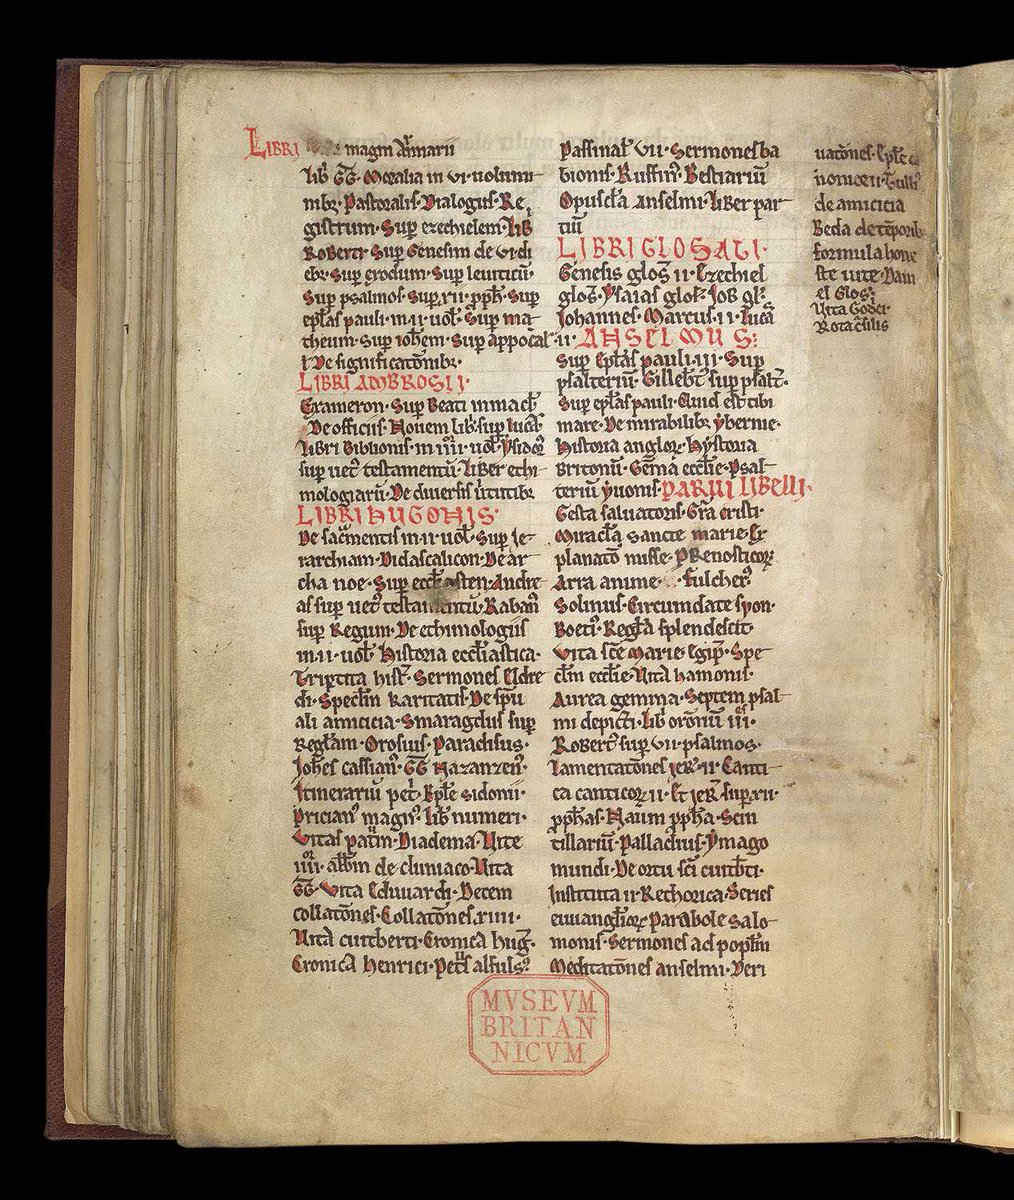 LIBRI magni Armarii
lib' GG. Moralia in vi uolumi
nib;. Pastoralis. Dialogus. Re
gistrum. Sup ezechielem. Lib
Roberti. Sup Genesim de vi di
eb;. Sup exodum. Sup leuiticū.
Sup psalmos. Sup. xii. pph. Sup
eplas pauli. in. ii. uol. Sup ma
theum. Sup ioh'em. Sup appocal'. ii.
De significatōnib;.
LIBRI AMBROSII.
Exameron. Sup Beati inmacl'.
De officiis. Nouem lib' sup lucā.
Libri Biblionis. in. iiii. uol. Ysidor'
sup uet' testamentū. Liber ethi
mologiarū. De diuersis uirtutib;
LIBRI HUGONIS.
De sac̄mentis in. ii. uol. Sup Je
rarchiam. Didascalicon. De ar
cha noe. Sup eccl'iasten. Andre
as sup uet' testamentū. Raban'
sup Regum. De ethimologiis
in. ii. uol. Historia eccl'iastica.
Triptita hist'. Sermones Eldre
di. Specl'm karitatis. De sp̄u
ali amicicia. Smaragdus sup
Regl'am. Orosius. Paradisus.
Joh'es cassian'. GG Nazanzen'.
Itinerariū pet'. Ep'le sidonii.
Prician' magn'. Lib' numeri.
Vitas pat̄m. Diadema. Uite
iiii abb'm de cluniaco. Uita
GG. Vita Eduuardi. Decem
collatōnes. Collatōnes. xiiii.
Uita cutberti. Cronica hug'.
Cronica henrici. Pet's alfuls'.
Passinal' vii. Sermones ba
bionis. Ruffin'. Bestiariū
Opuscl'a Anselmi. Liber par
tiū
LIBRI GLOSATI.
Genesis glos' ii. Ezechiel
glos'. Ysaias glos'. Job gl'.
Johannes. Marcus. ii. Lucā
ANSELMUS:
Sup Epl'as pauli. iii. Sup
psalteriū. Gillebt' sup psalt'.
Sup epl'as pauli. Quid est tibi
mare. De mirabilib; ybernie.
Historia anglor;. Hystoria
Britonū. Gēma eccl'ie. Psal
teriū yuonis. PARUI LIBELLI.
Gesta saluatoris. Gr̄a cristi.
Miracl'a sancte marie. Ex
planatō misse. PRenosticor;
Arra anime. Fulcher'
Solinus. Circumdate syon.
Boeti'. Regl'a splendescit.
Vita sc̄e Marie Egip'. Spe
cl'm eccl'ie. Uita hamonis.
Aurea gemma. Septem psal
mi depicti. Lib' orōnum iii.
Robert' sup vii. psalmos.
Lamentatōnes jer'. ii. Canti
ca canticor; ii. Et jer'. sup. xii.
pph'as. Naum pph'a. Scin
tillariū. Palladius. Ymago
mundi. De ortu sc̄i cutb'ti.
Instituta ii. Rethorica. Series
euuangl'ior;. Parabole Salo
monis. Sermones ad popl'm
Meditatōnes anselmi. Deri
uatōnes. Ep'le
Tulli'
de amicicia
Beda de tēporib;
formula hone
ste uite. Dani
el Glos'.
Uita Godri
MVSEVM
BRITAN
NICVM